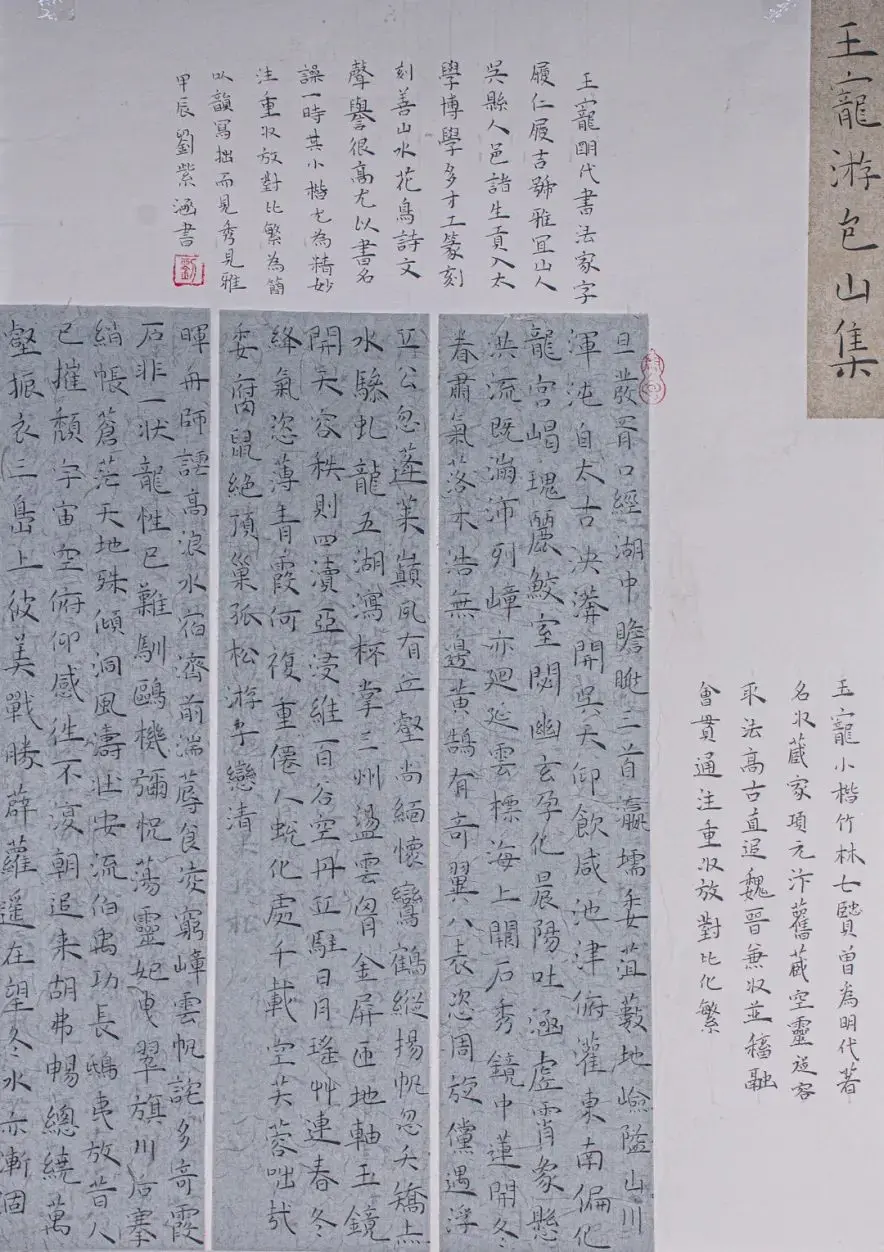 王寵游包山集
王寵明代書法家字
履仁履吉號雅宜山人
吳縣人邑諸生貢入太
學博學多才工篆刻
刻善山水花鳥詩文
聲譽很高尤以書名
譟一時其小楷尤為精妙
注重收放對比繁為簡
以韻寫拙而見秀見雅
甲辰劉紫涵書
劉
王寵小楷竹林七賢曾為明代著
名收藏家項元汴舊藏空靈從容
取法高古直追魏晉兼收並蓄融
會貫通注重收放對比化繁
旦發胥口經湖中瞻眺三首瀛壖委菹藪地嶮隘山川
渾沌自太古決漭開吳天仰飲咸池津俯灌東南偏化
龍宮嵑瑰麗鮫室閟幽玄孕化晨陽吐涵虛霄象懸
洪流既㵼沛列嶂亦廻延雲標海上闢石秀鏡中蓮開冬
眷肅氣落木浩無邊黃鵠有奇翼八表恣周旋儻遇浮
丘公忽蓬萊巔夙有丘壑尚緬懷鸞鶴縱揚帆忽矢矯点
水驂虬龍五湖瀉杯掌三州盪雲胷金屏匝地軸玉鏡
開天容秩則四瀆亞浸維百谷空丹丘駐日月瑤艸連春冬
絳氣恣薄青霞何複重僊人蛻化處千載空芙蓉咄哉
委腐鼠絕頂巢孤松游子戀清
暉舟師謹高浪水宿濟前湍蓐食凌窮嶂雲帆詫多奇霞
石非一狀龍性已難馴鷗機彌怳蕩靈妃曳翠旗川后搴
綃帳蒼茫天地殊傾洞風濤壯安流伯禹功長鴟夷放昔人
已摧頹宇宙空俯仰感徃不復朝追来胡弗暢總繞萬
壑振衣三島上彼美戰勝薜蘿遥在望冬水亦漸涸